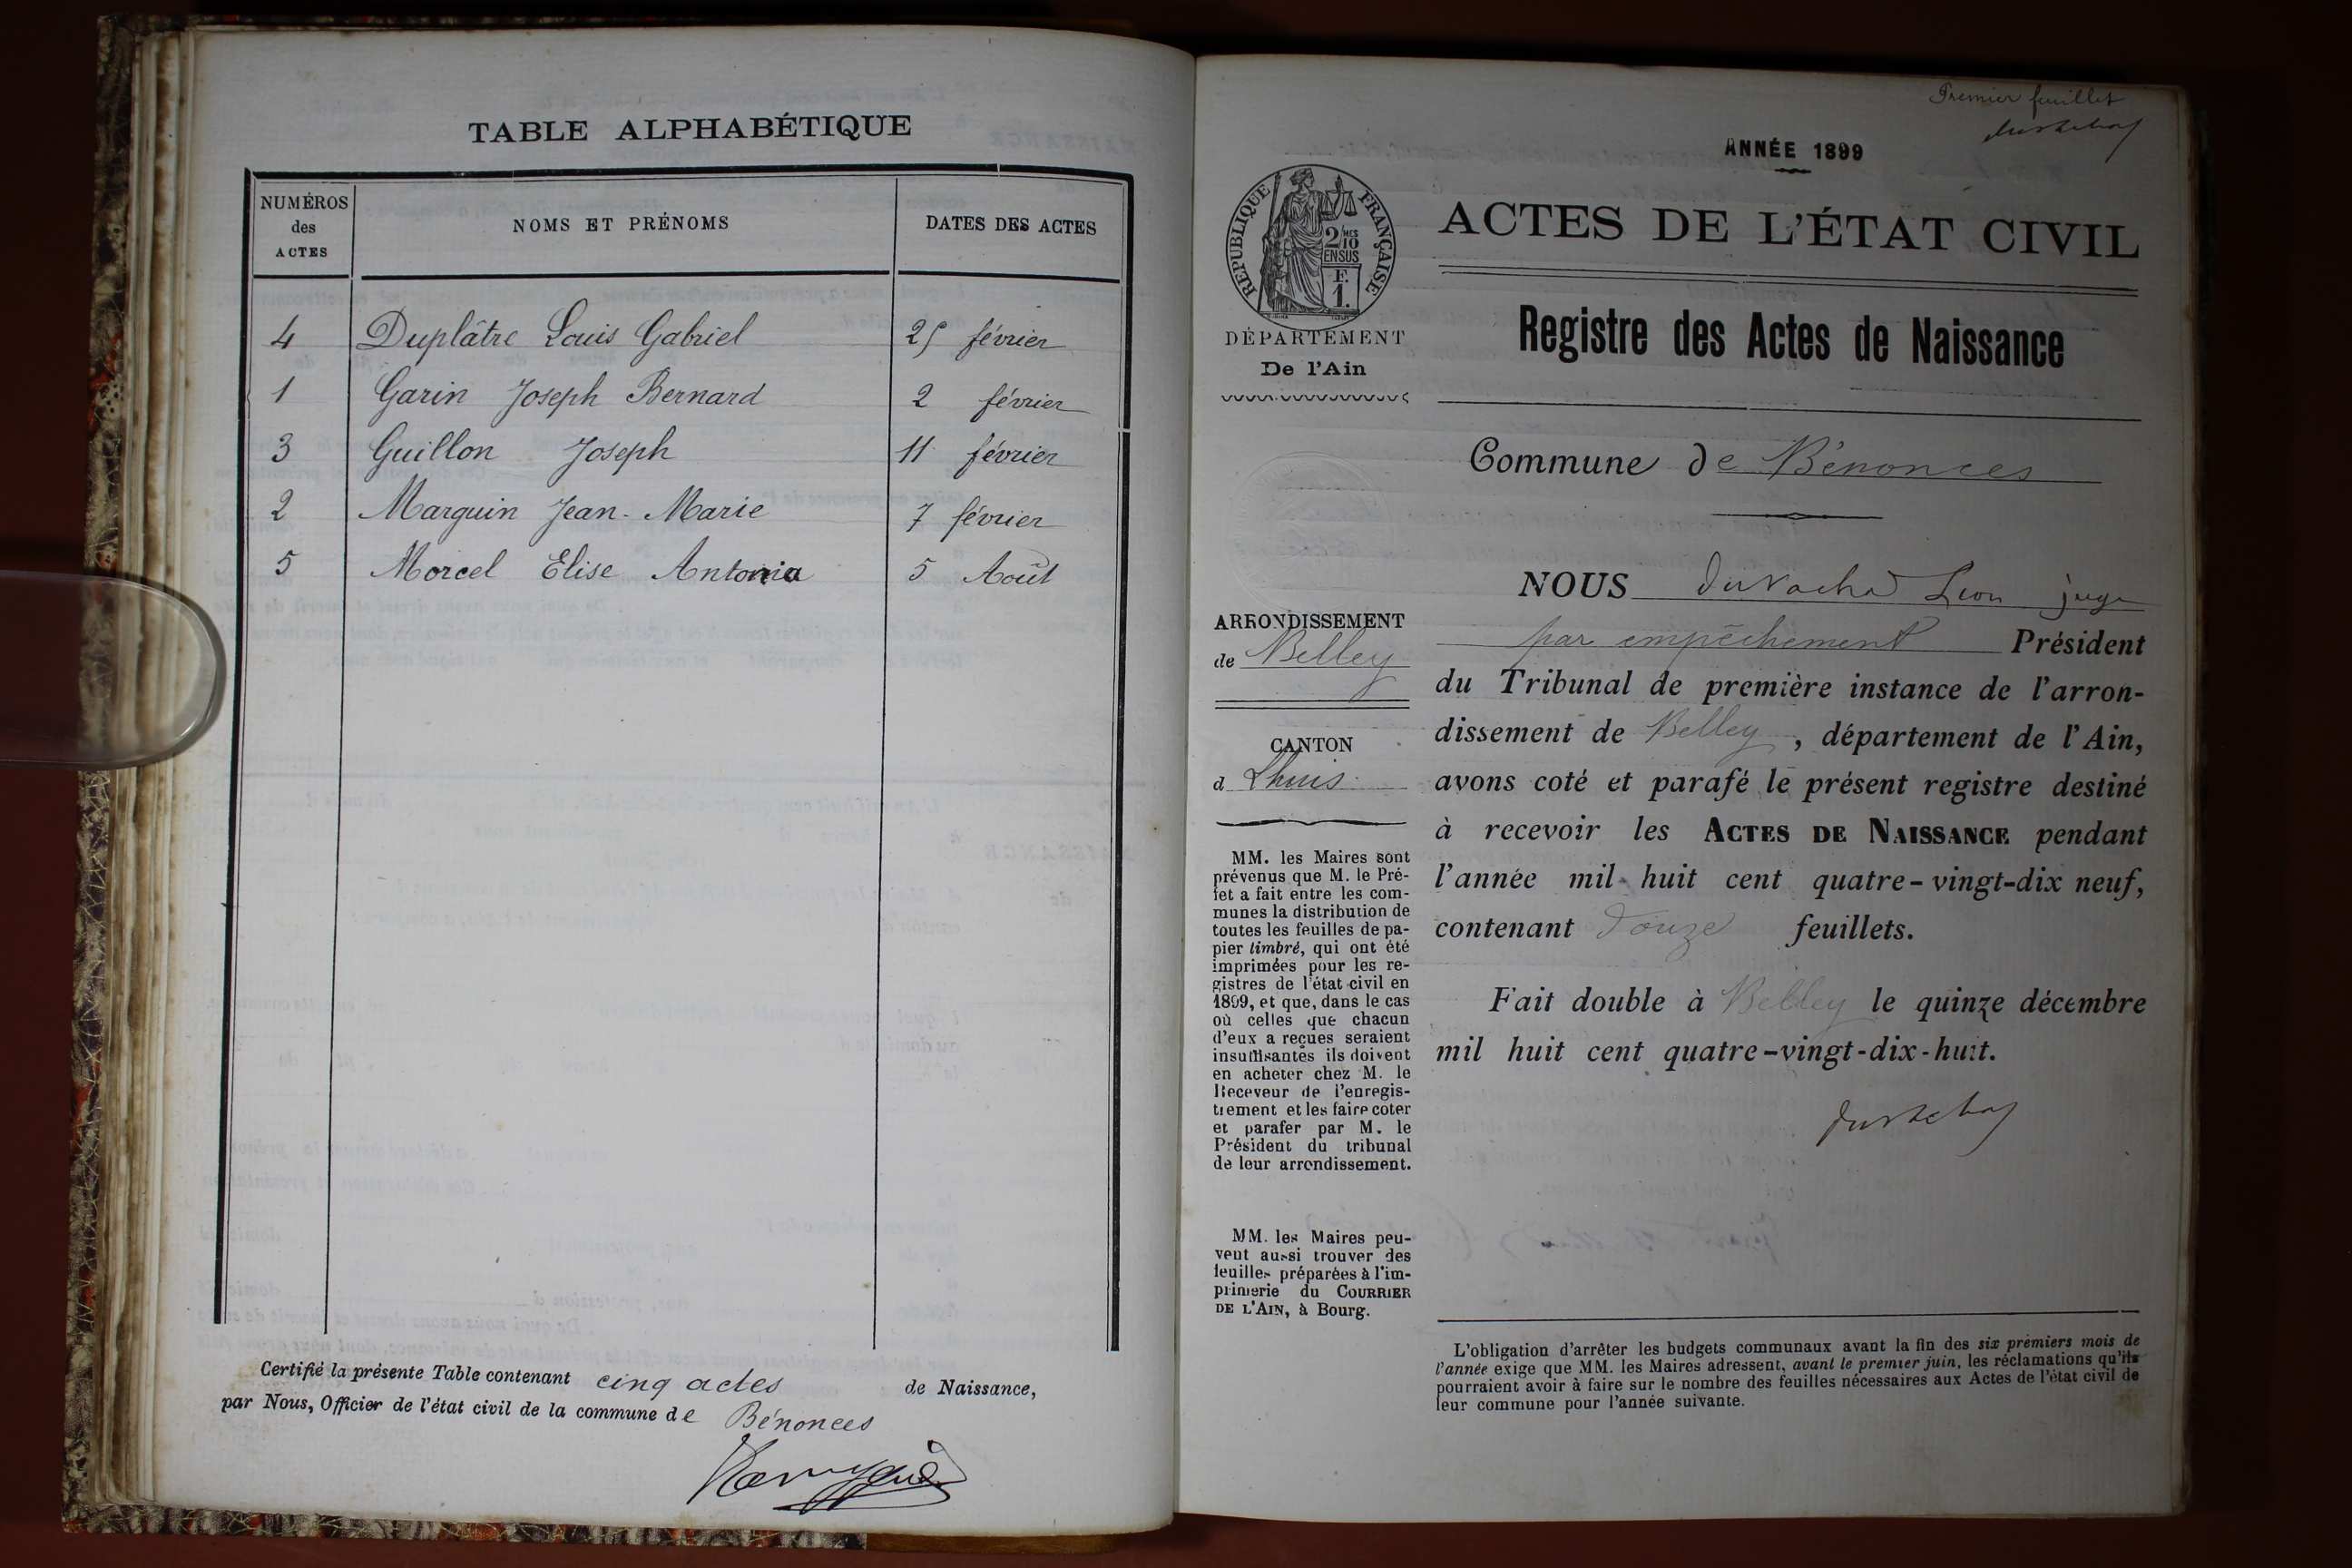 TABLE ALPHABÉTIQUE
NUMÉROS des ACTES
NOMS ET PRÉNOMS
DATES DES ACTES
4 Duplâtre Louis Gabriel 25 février
1 Garin Joseph Bernard 2 février
3 Guillon Joseph 11 février
2 Marguin Jean-Marie 7 février
5 Morcel Elise Antonia 5 Août
Certifié la présente Table contenant cinq actes de Naissance,
par Nous, Officier de l'état civil de la commune de Bénonces
Premier feuillet
ANNÉE 1899
RÉPUBLIQUE FRANÇAISE
2/10 MES
EN SUS
F.
1.
DÉPARTEMENT
De l'Ain
ACTES DE L'ÉTAT CIVIL
Registre des Actes de Naissance
Commune de Bénonces
ARRONDISSEMENT
de Belley
CANTON
d Lhuis
MM. les Maires sont
prévenus que M. le Pré-
fet a fait entre les com-
munes la distribution de
toutes les feuilles de pa-
pier timbré, qui ont été
imprimées pour les re-
gistres de l'état civil en
1899, et que, dans le cas
où celles que chacun
d'eux a reçues seraient
insuffisantes ils doivent
en acheter chez M. le
Receveur de l'enregis-
trement et les faire coter
et parafer par M. le
Président du tribunal
de leur arrondissement.
MM. les Maires peu-
vent aussi trouver des
feuilles préparées à l'im-
primerie du COURRIER
DE L'AIN, à Bourg.
NOUS Léon juge
par empêchement Président
du Tribunal de première instance de l'arron-
dissement de Belley, département de l'Ain,
avons coté et parafé le présent registre destiné
à recevoir les ACTES DE NAISSANCE pendant
l'année mil huit cent quatre-vingt-dix neuf,
contenant douze feuillets.
Fait double à Belley le quinze décembre
mil huit cent quatre-vingt-dix-huit.
L'obligation d'arrêter les budgets communaux avant la fin des six premiers mois de
l'année exige que MM. les Maires adressent, avant le premier juin, les réclamations qu'ils
pourraient avoir à faire sur le nombre des feuilles nécessaires aux Actes de l'état civil de
leur commune pour l'année suivante.